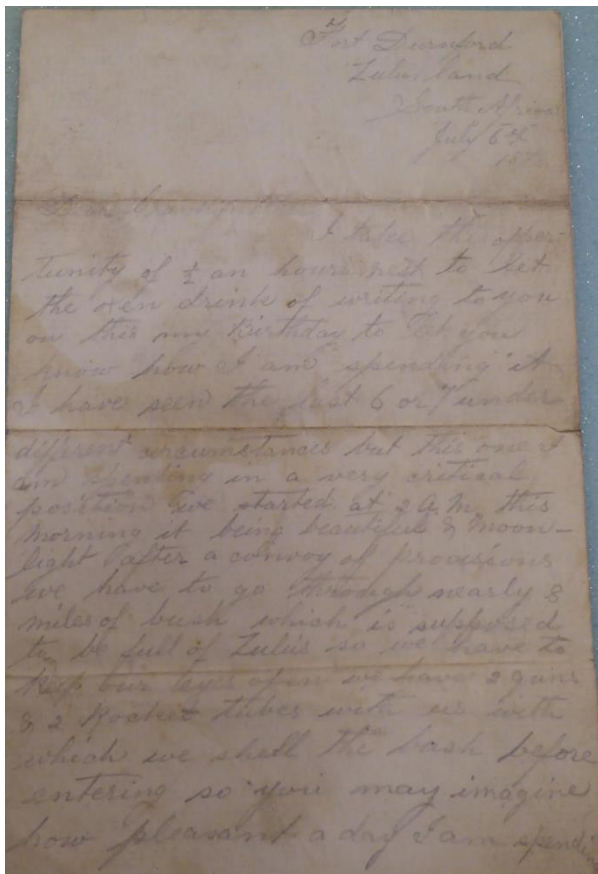 Fort Durnford
Zulu land
South Africa
July 6th
Dear
I take this opper-
tunity of ½ an hours rest to let
the oxen drink of writing to you
on this my birthday to let you
know how I am spending it
I have seen the last 6 or 7 under
different circumstances but this one I
am spending in a very critical
position we started at 2 A.M. this
morning it being beautiful & Moon-
light after a convoy of provisions
we have to go through nearly 8
miles of bush which is supposed
to be full of Zulus so we have to
keep our eyes open we have 2 guns
& 2 Rocket tubes with us with
which we shell the bush before
entering so you may imagine
how pleasant a day I am spending